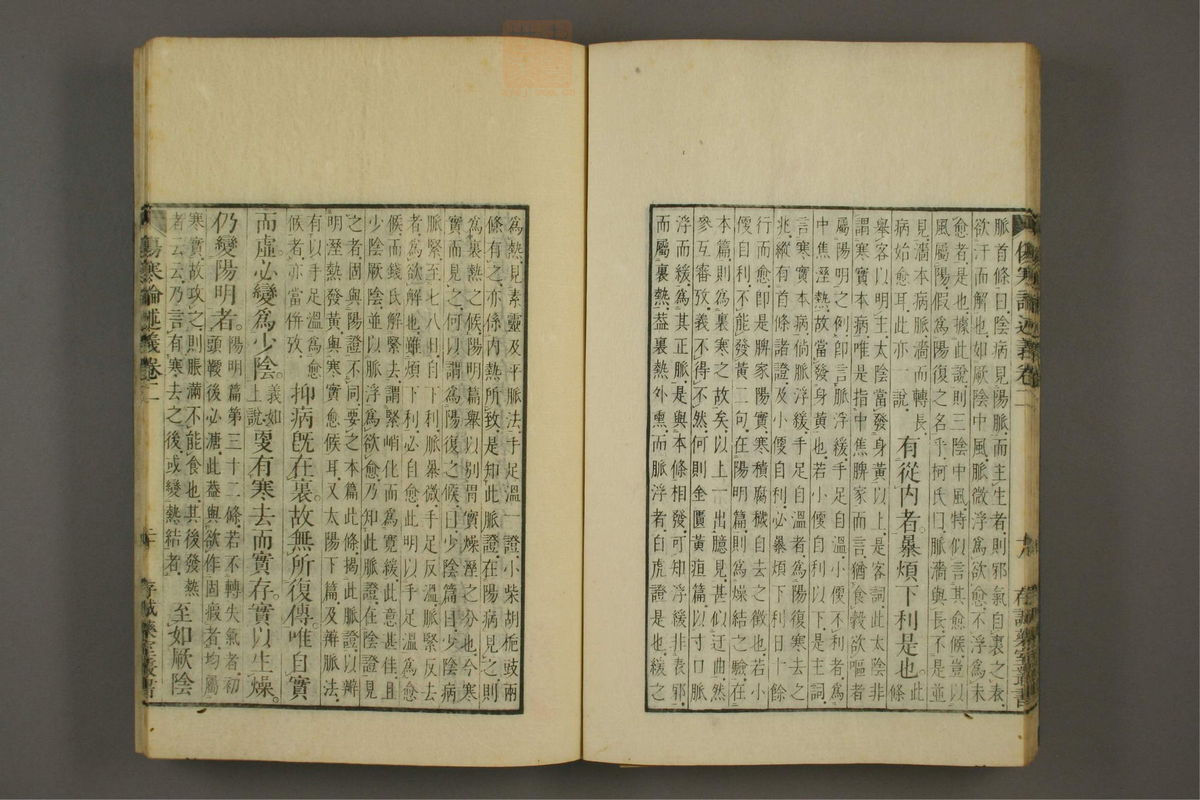 脈首條曰陰病見陽脈而主生者則邪氣自裏之表
欲汗而解也如厥陰中風脈微浮爲欲愈不浮爲未
愈者是也據此說則三陰中風特似言其愈候豈以
風屬陽假爲陽復之名乎柯氏曰脈濇與長不是並
見濇本病脈濇而轉長
病始愈耳此亦一說 有從內者暴煩下利是也 此條
舉客以明主太陰當發身黃以上是客詞此太陰非
謂寒實本病唯是指中焦脾家而言猶食穀欲嘔者
屬陽明之例卽言脈浮緩手足自溫小便不利者爲
中焦溼熱故當發身黃也若小便自利以下是主詞
言寒實本病倘脈浮緩手足自溫者爲陽復寒去之
兆縱有首條諸證及小便自利必暴煩下利日十餘
行而愈卽是脾家陽實寒積腐穢自去之徵也若小
便自利不能發黃二句在陽明篇則爲燥結之驗在
本篇則爲裏寒之故矣以上一出臆見甚似迂曲然
參互審攷義不得不然何則金匱黃疸篇以寸口脈
浮而緩爲其正脈是與本條相發可知浮緩非表邪
而屬裏熱葢裏熱外熏而脈浮者白虎證是也緩之
傷寒論述義卷二
十八 存誠藥室叢書
爲熱見素靈及平脈法手足溫一證小柴胡梔豉兩
條有之亦係內熱所致是知此脈證在陽病見之則
爲裏熱之候陽明篇舉以別胃實燥溼之分也今寒
實而見之何以謂爲陽復之候曰少陰篇曰少陰病
脈緊至七八日自下利脈暴微手足反溫脈緊反去
者爲欲解也雖煩下利必自愈此明以手足溫爲愈
候而錢氏解緊去謂緊峭化而爲寬緩此意甚佳且
少陰厥陰並以脈浮爲欲愈乃知此脈證在陰證見
之者固與陽證不同要之本篇此條揭此脈證以辨
明溼熱發黃與寒實愈候耳又太陽下篇及辨脈法
有以手足溫爲愈
候者亦當併攷 抑病旣在裏故無所復傳唯自實
而虛必變爲少陰 義如上說 更有寒去而實存實以生燥
仍變陽明者 陽明篇第三十二條若不轉失氣者初
頭鞕後必溏此葢與欲作固瘕者均屬
寒實故攻之則脹滿不能食也其後發熱
者云云乃言有寒去之後或變熱結者 至如厥陰
傷寒論述義卷二
存誠藥室叢書